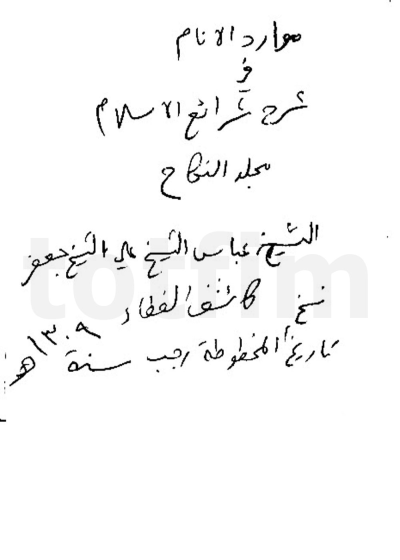 موارد الانام
في
شرح شرائع الاسلام
مجلد النكاح
الشيخ عباس الشيخ علي الشيخ جعفر
نسخ كاشف الغطاء
تاريخ المخطوطة رجب سنة ١٣٠٩ هـ